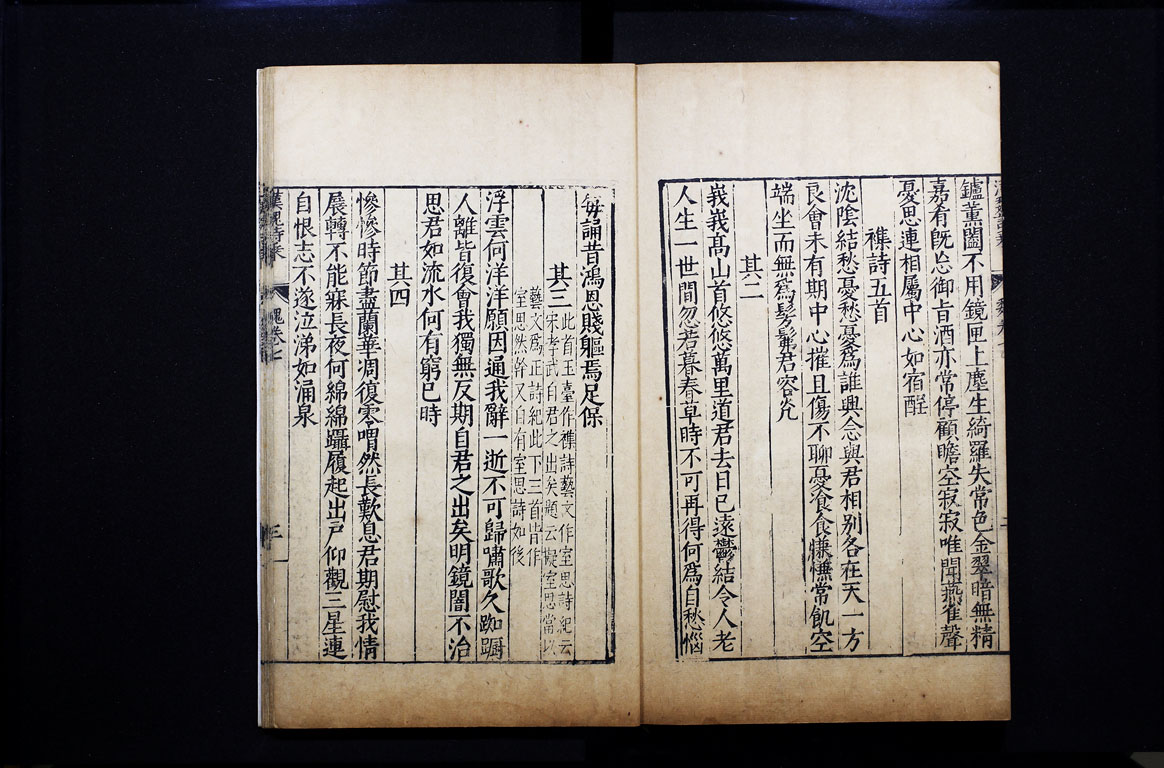 鑪薰闔不用鏡匣上塵生綺羅失常色金翠暗無精
嘉肴旣忘御旨酒亦常停顧瞻空寂寂唯聞燕雀聲
憂思連相屬中心如宿酲
襍詩五首
沈陰結愁憂愁憂爲誰興念與君相别各在天一方
良會未有期中心摧且傷不聊憂湌食慊慊常飢空
端坐而無爲髣髴君容光
其二
峩峩高山首悠悠萬里道君去日已遠鬱結令人老
人生一世間忽若暮春草時不可再得何爲自愁惱
每誦昔鴻恩賤軀焉足保
其三
此首玉臺作襍詩藝文作室思詩紀云
宋孝武自君之出矣題云擬室思當以
藝文爲正詩紀此下三首皆作
室思然幹又自有室思詩如後
浮雲何洋洋願因通我辭一逝不可歸嘯歌久踟躕
人離皆復會我獨無反期自君之出矣明鏡闇不治
思君如流水何有窮已時
其四
慘慘時節盡蘭華凋復零喟然長歎息君期慰我情
展轉不能寐長夜何綿綿躡履起出戸仰觀三星連
自恨志不遂泣涕如涌泉
漢魏詩乘
魏卷七
三